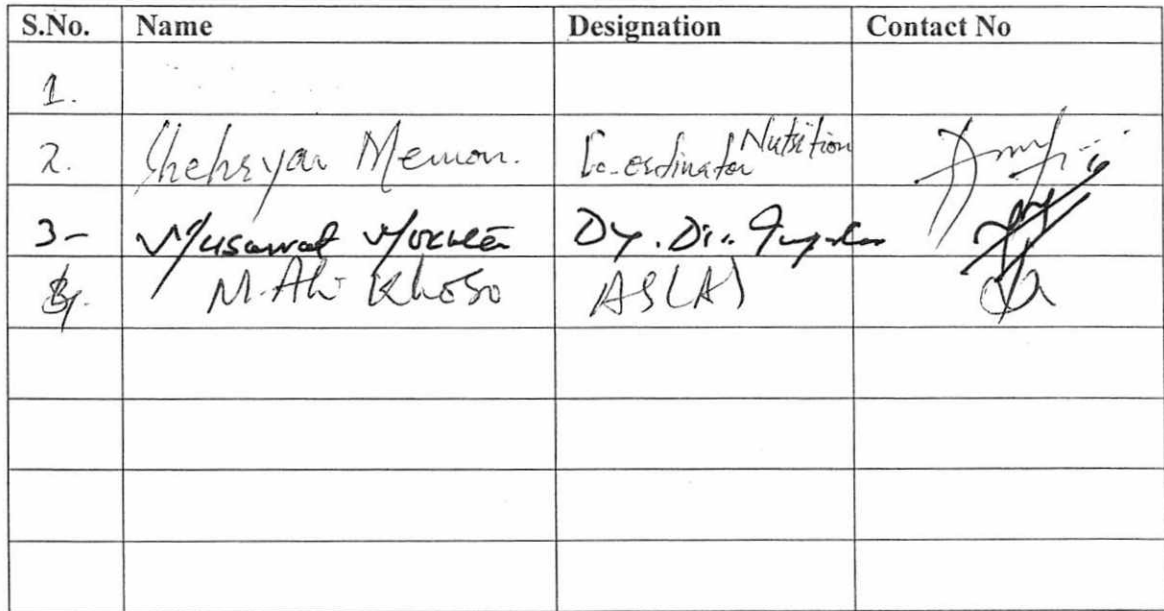 S.No. Name Designation Contact No
1.
2. Shehryar Memon. Co-ordinator Nutrition
3- Dy. Dir.
M. Ali Khoso AS(A)